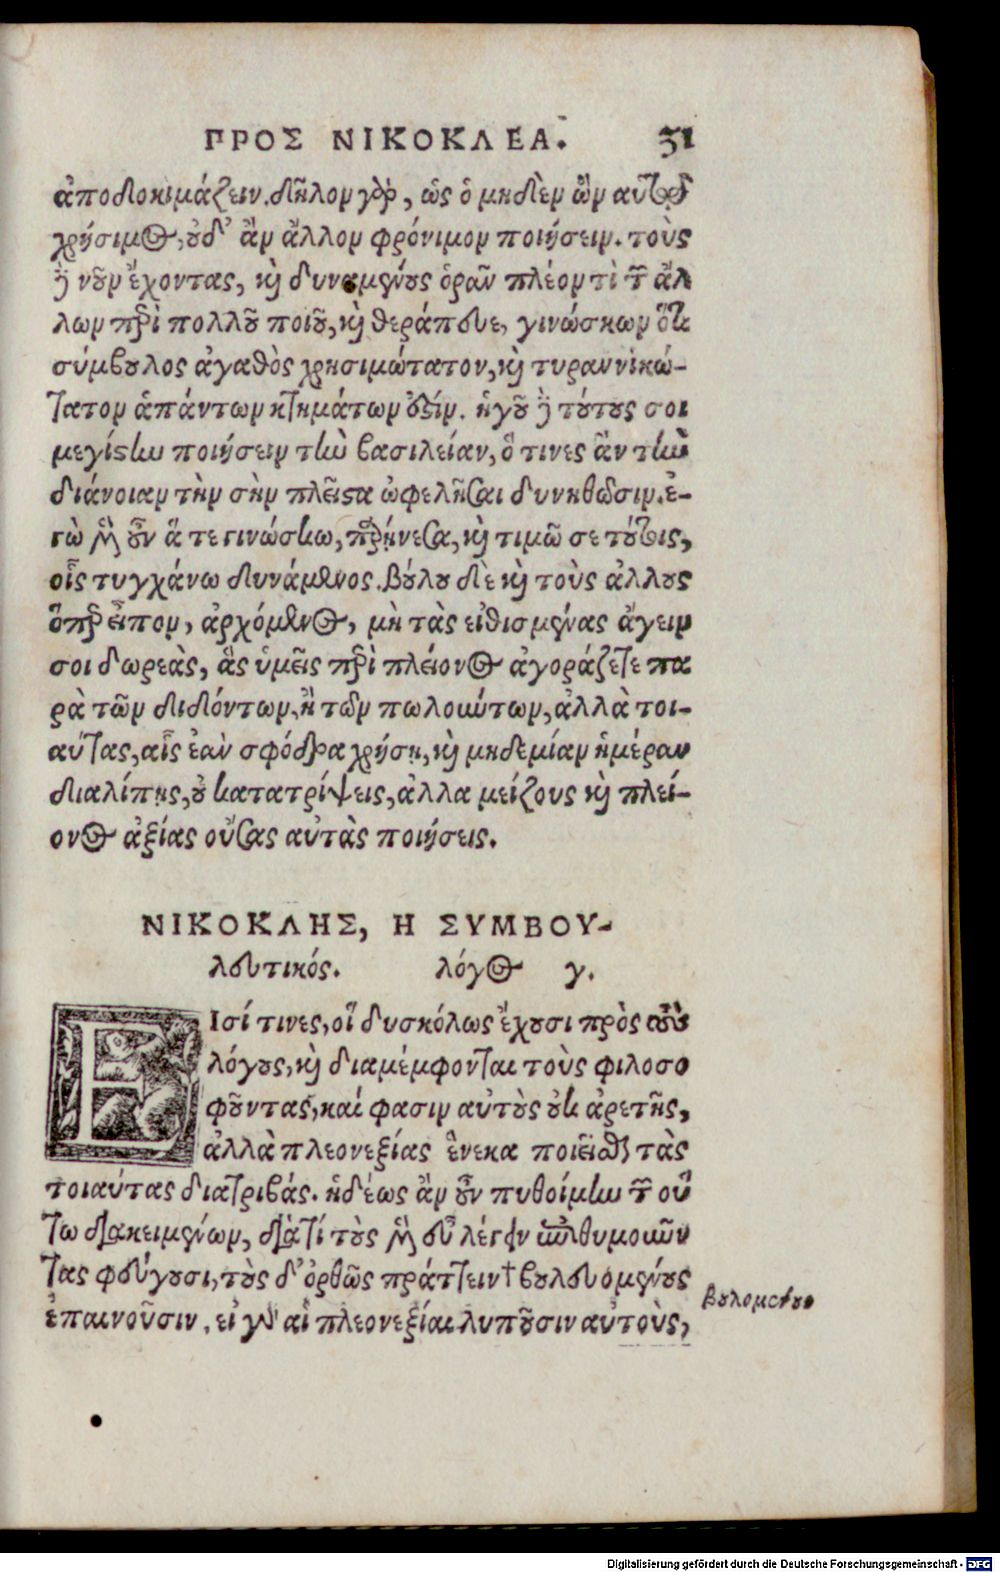 ΠΡΟΣ ΝΙΚΟΚΛΕΑ. 31
ἀποδοκιμάζειν. δῆλον γὸρ, ὡς ὁ μηδὲν ὢν αὑτῷ
χρήσιμος, οὐδ' ἂν ἄλλον φρόνιμον ποιήσειν. τοὺς
δὲ νοῦν ἔχοντας, καὶ δυναμένους ὁρᾶν πλέον τὶ τῶν ἄλ
λων περὶ πολλοῦ ποιοῦ, καὶ θεράπευε, γινώσκων ὅτι
σύμβουλος ἀγαθὸς χρησιμώτατον, καὶ τυραννικώ-
τατον ἁπάντων κτημάτων ἐστίν. ἡγοῦ δὲ τούτους σοι
μεγίστην ποιήσειν τὴν βασιλείαν, ὅ τινες ἂν τὴν
διάνοιαν τὴν σὴν πλεῖστα ὠφελῆσαι δυνηθῶσιν. ἐ-
γὼ μὲν οὖν ἅ τε γινώσκω, παρῄνεσα, καὶ τιμῶ σε τούτοις,
οἷς τυγχάνω δυνάμενος. βούλου δὲ καὶ τοὺς ἄλλους
ὅπερ εἶπον, ἀρχόμενος, μὴ τὰς εἰθισμένας ἄγειν
σοι δωρεὰς, ἃς ὑμεῖς περὶ πλείονος ἀγοράζετε πα
ρὰ τῶν διδόντων, ἢ τῶν πωλούντων, ἀλλὰ τοι-
αύτας, αἷς ἐὰν σφόδρα χρήσῃ, καὶ μηδεμίαν ἡμέραν
διαλίπῃς, οὐ κατατρίψεις, ἀλλα μείζους καὶ πλεί-
ονος ἀξίας οὔσας αὐτὰς ποιήσεις.
ΝΙΚΟΚΛΗΣ, Η ΣΥΜΒΟΥ-
λευτικός. λόγος γ.
ΕΙσί τινες, οἳ δυσκόλως ἔχουσι πρὸς τοὺς
λόγους, καὶ διαμέμφονται τοὺς φιλοσο
φοῦντας, καί φασιν αὐτοὺς οὐκ ἀρετῆς,
ἀλλὰ πλεονεξίας ἕνεκα ποιεῖσθαι τὰς
τοιαύτας διατριβάς. ἡδέως ἂν οὖν πυθοίμην τῶν οὕ
τω διακειμένων, διὰ τί τοὺς μὲν εὖ λέγειν ἐπιθυμοῦν
τας ψεύγουσι, τοὺς δ' ὀρθῶς πράττειν † βουλευομένους
ἐπαινοῦσιν, εἰ γὰρ αἱ πλεονεξίαι λυποῦσιν αὐτοὺς,
βουλομένους
Digitalisierung gefördert durch die Deutsche Forschungsgemeinschaft - DFG